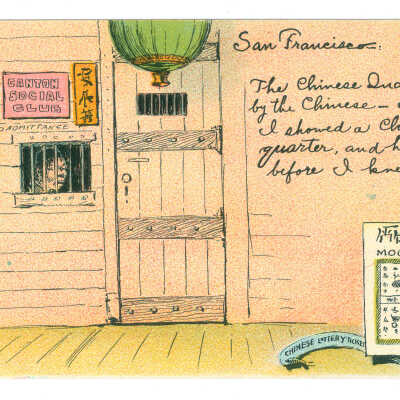 CANTON
SOCIAL
CLUB
ADMITTANSE
San Francisco:
The Chinese Qua
by the Chinese —
I showed a Ch
quarter, and h
before I kne
MOO
CHINESE LOTTERY